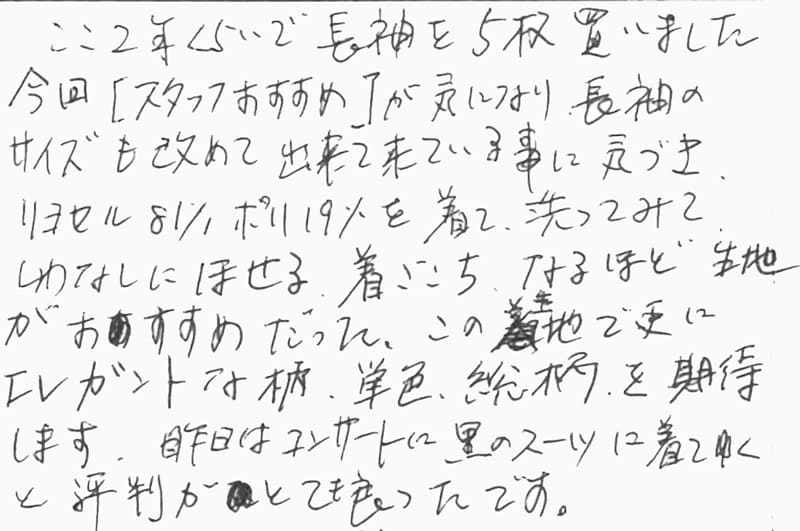 ここ2年くらいで長袖を5枚買いました
今回[スタッフおすすめ]が気になり、長袖の
サイズも改めて出来て来ている事に気づき、
リヨセル81%ポリ19%を着て、洗ってみて、
しわなしにほせる、着ごこち、なるほど生地
がおすすめだった。この生地で更に
エレガントな柄、単色、総柄、を期待
します。昨日はコンサートに黒のスーツに着てゆく
と評判がとても良ったです。